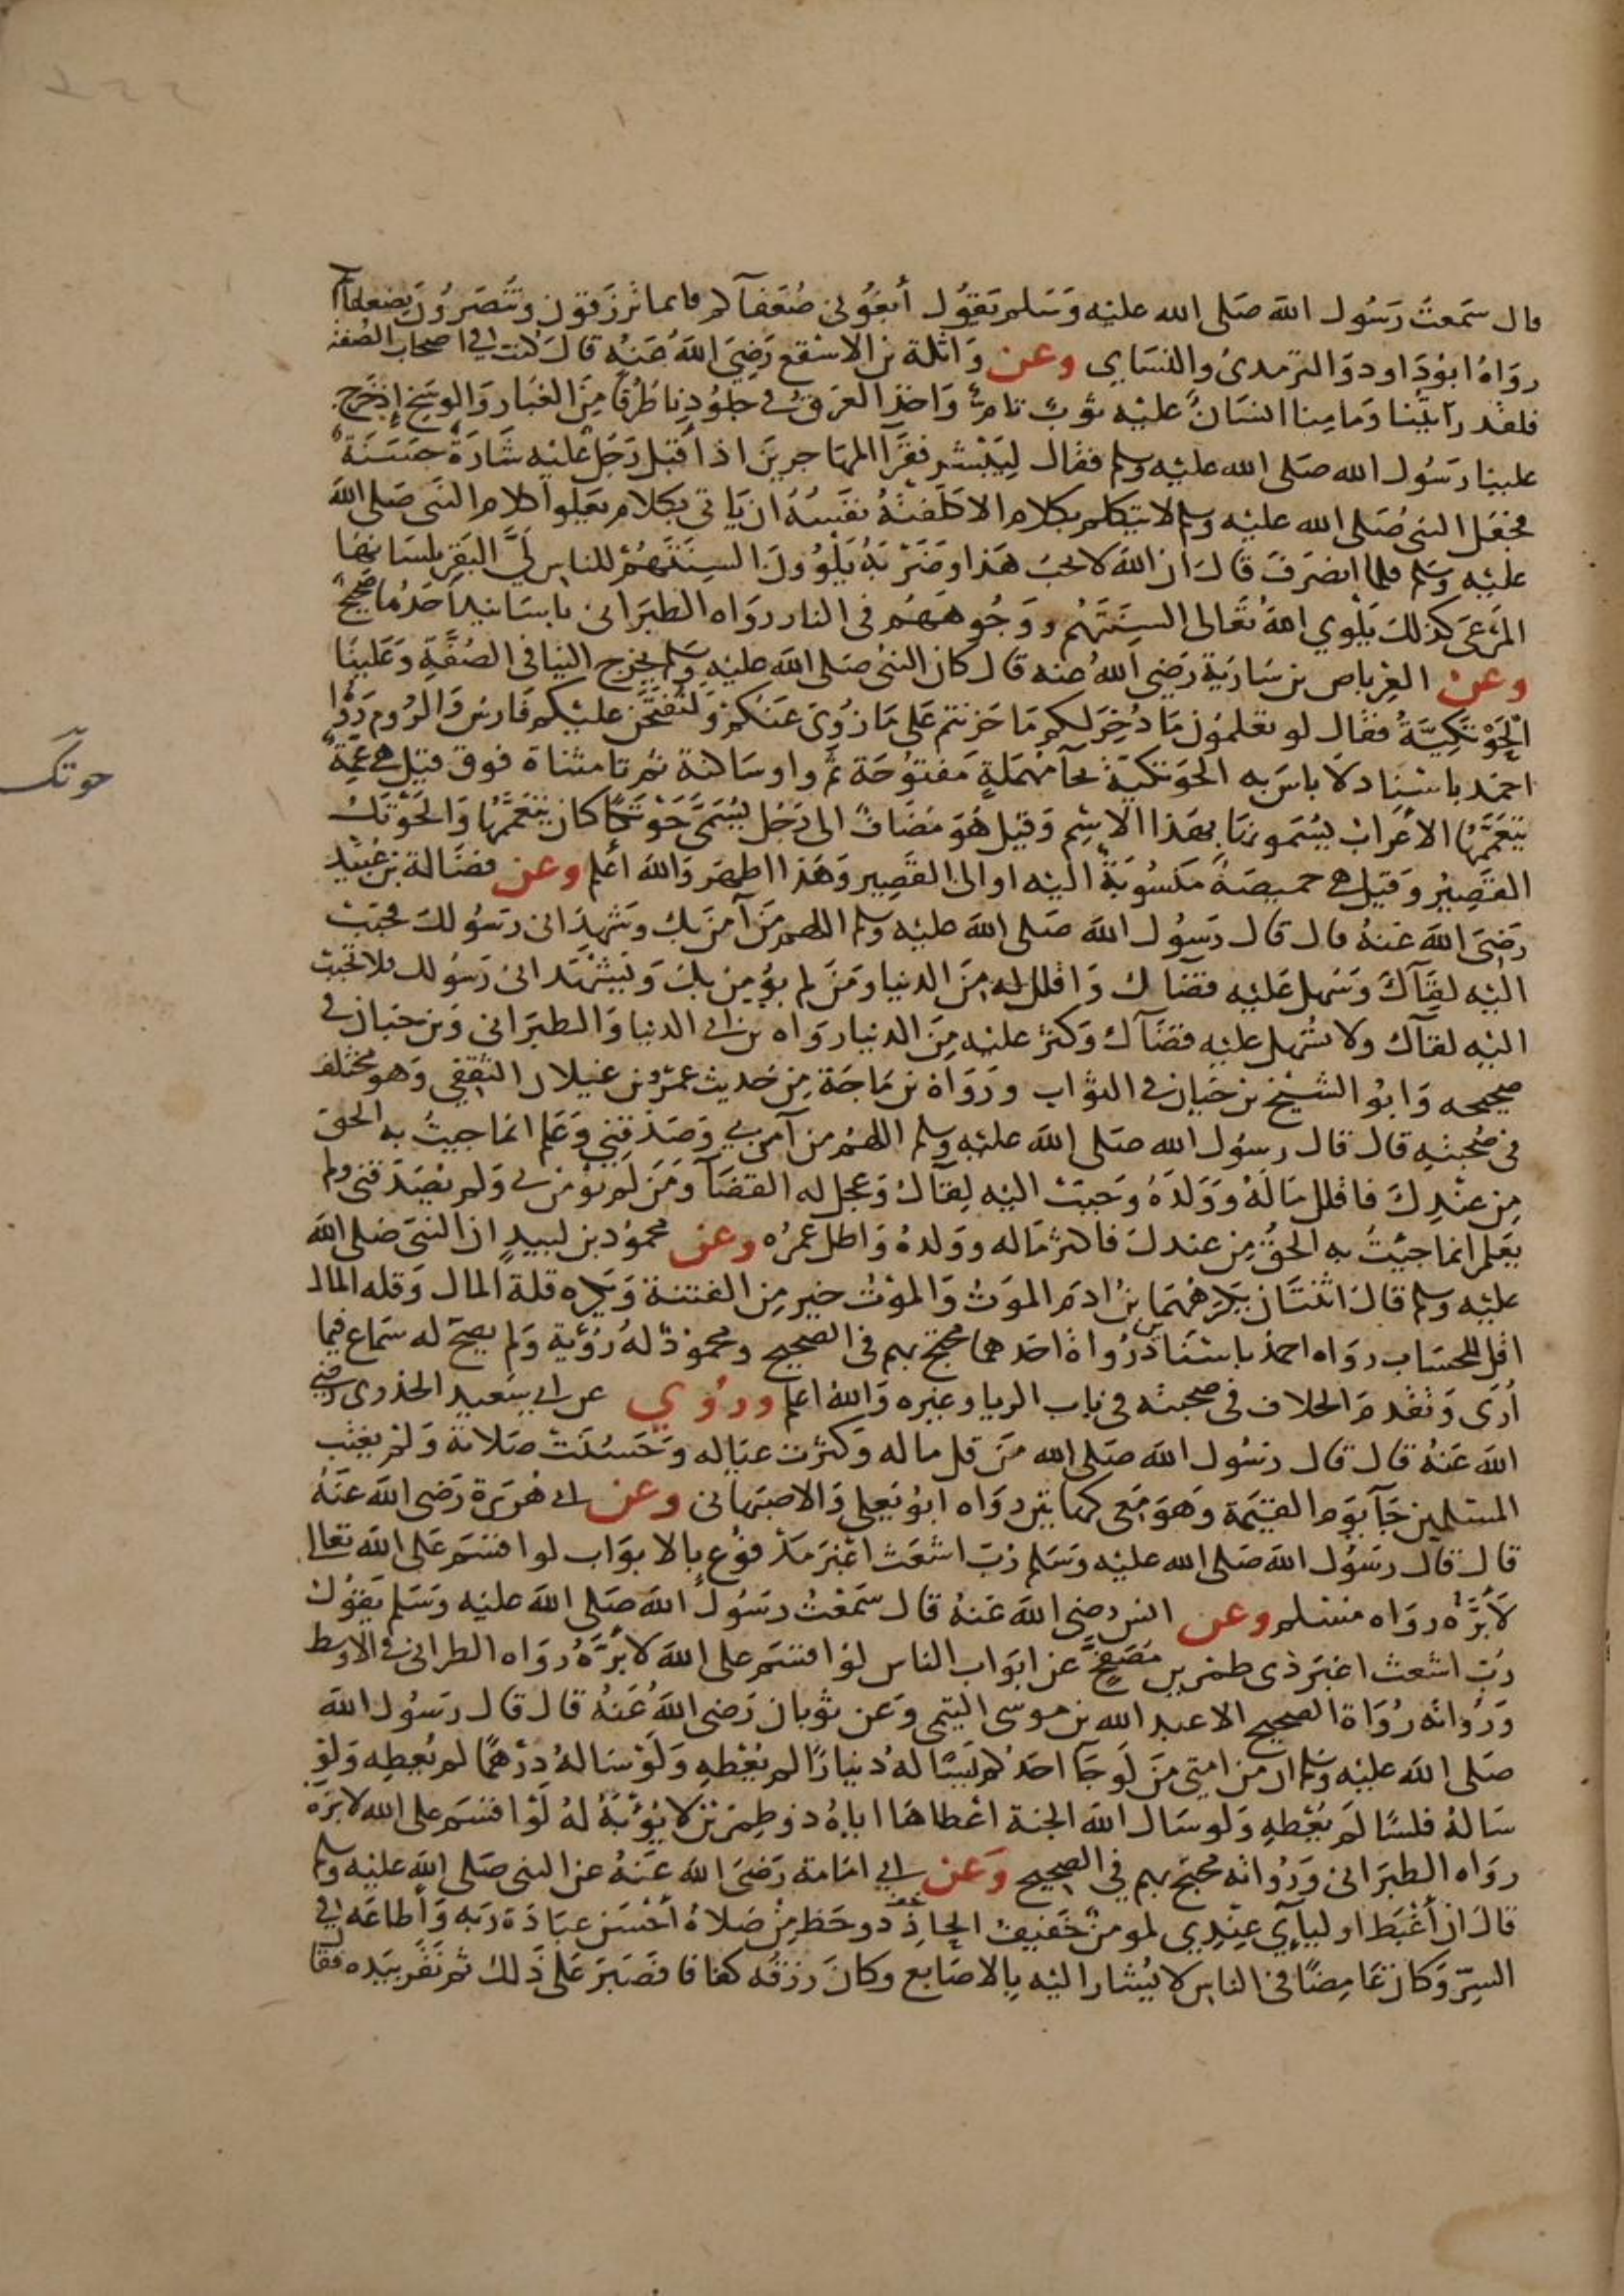 قال سَمعتُ رَسُول اللهَ صَلى الله عليْه وَسَلم يَقوُل أبغوُني ضُعَفآكم فانما تُرزقون وتُنصَرُون بِضعفائكم
روَاهُ ابوُدَاود وَالترمدىُ والنسَاى وعن وَاثلة بن الاسْقع رَضِيَ اللهُ عَنهُ قال كنت في اصحاب الصُفة
فلقد رأيتنا وَما مِنا انسَانٌ عليْه ثوبٌ تامٌ وَاخذ العَرقُ في جلوُدِنا طُرقًا مِنَ الغُبار وَالوسَخ إذ خَرج
علينا رَسُول الله صَلى الله عليْه وسلم فقال لِيَبْشر فقرَآ المهَاجرينَ اذ أقبل رَجُل عَليْه شَارَة حَسَنَة
فجعَل النبىُ صَلى الله عليْه وسلم لا يتكلم بكلام الا كلفتهُ نفسُهُ ان يَاتى بكلام يَعلوا كلام النبى صَلى اللهَ
عليْه وسَلم فلما انصَرفَ قال ان اللهَ لا يحبُ هَذا وضَرْبَهُ يَلوُونَ السِنَتَهُمْ للناس لَيَّ البَقَر بلسَانهَا
المَرْعَى كذلكَ يَلْوي اللهُ تَعَالى السِنَتَهُم ووَجُوههَهُم فى النار روَاه الطبَرانى باسَانيد أحَدُها صَحيحٌ
وعن العِرباض بن سَاريَة رَضِي اللهُ عنه قال كان النبىُ صَلى اللهَ عليْه وسَلم يخرج الينا فى الصُفَّةِ وَعَلينَا
الْحَوْتكيَّةُ فقال لو تعلمُون مَا دُخِرَ لكم مَا حَزنتم عَلى مَا زُوىَ عَنكم وَلتُفتَحَن عليْكم فَارسُ وَالرُوم روَاهُ
احمَد باسْنِاد لاَ باسَ به الحَوتكيَّة بحَآ مُهمَلةٍ مَفتوُحَة ثم واو سَاكنة ثم تا مثناة فوق قيل هي عِمَّةٌ
يَتَعَمَّمُهَا الاعْرابُ يُسَمونهَا بهَذا الاسْم وَقيْل هُوَ مُضَافٌ الى رَجُل يُسَمَّى حَوْتَكًا كان يَتعَمَّمُهَا وَالحَوْتَكُ
القَصِيرُ وقيل هي خميصَةٌ مَنسُوبَةٌ اليْه او الى القَصِير وَهَذا اظهر وَاللهَ أعْلم وعن فضَالة بن عُبَيْد
رَضِيَ اللهَ عَنهُ قال قال رَسُول اللهَ صَلى اللهَ عليْه وسلم اللهم مَن آمَن بك وشَهِدَ انى رَسُولكَ فحبِّبْ
اليْه لِقَآكَ وَسَهل عَليْه قضَاك وَاقلل له مِنَ الدنيا ومَن لم يؤمِن بكَ وَيَشهَد انى رَسُولك فلا تُحببْ
اليْه لقاكَ ولا تُسَهل عليْه قضَآك وَكثر عليْه مِنَ الدنيا روَاه بن ابى الدنيا وَالطبَرانى وَبن حبَان فى
صحيحه وَابوُ الشيْخ بن حَيان فى الثوَاب وروَاهُ بن مَاجَة مِن حَديث عَمْرو بن غيلان الثقفى وَهو مختلف
فى صُحْبتِه قال قال رسُول الله صَلى اللهَ عليْه وسلم اللهُم من آمن بي وصَدَّقني وَعَلم انمَا جيتُ به الحق
مِن عنْدِكَ فاقلل مَالهُ ووَلدَهُ وَحببْ اليْه لِقآكَ وَعجل له القضَآ ومَن لمْ يؤمن بى وَلم يصَدقنى ولم
يَعلم انما جيْتُ به الحَقُ مِن عندكَ فاكثر مَاله ووَلدهُ وَاطل عمرُه وعن محمُود بن لبيدٍ ان النبى صَلى اللهَ
عليْه وسلم قال اثنتَان يَكرَهُهُمَا بنُ ادمَ الموَتُ وَالموْتُ خير مِن الفتنة وَيكره قلة المال وَقله المال
اقل للحسَاب روَاه احمدُ باسْنَادَيْن رُواة احَدهما محتج بهم فى الصحيح ومحمودٌ لهُ رُؤية وَلم يصح له سَماع فيما
أرَى وَتقدمَ الخلاف فى صحبته فى بَاب الريا وغيره وَاللهُ اعلم ورُوي عن ابي سَعيد الخذرى رضي
اللهَ عَنهُ قال قال رسُول اللهَ صَلى الله مَن قل ماله وَكثرت عيَاله وَحَسُنَت صَلاتهُ وَلم يَغْتَب
المسْلمين جَآ يَوم القيْمة وَهوَ مَعى كهَاتين روَاه ابوُ يَعلى وَالاصْبَهانى وعن ابى هُريَرة رَضى اللهَ عنهُ
قال قال رسَوُل اللهَ صَلى الله عليْه وَسَلم رُبَّ اشعَثَ اغبَر مَدْفوُع بالابوَاب لو اقسَم عَلى اللهَ تعالى
لأبَرَّهُ روَاه مسْلم وعن انس رضى اللهَ عَنهُ قال سَمعْتُ رسَول اللهَ صَلى اللهَ عليْه وَسَلم يَقوُل
رُب اشعث اغبَر ذى طمرين مُصَفَّحٍ عَن ابوَاب الناس لوْ اقسَم على اللهَ لأبَرَّهُ روَاه الطرانى فى الاوسط
وَرُواته رُوَاة الصحيح الا عبد الله بن موسى التيمى وَعن ثوبان رَضى اللهُ عَنهُ قال قال رسَوُل اللهَ
صَلى اللهَ عليْه وسَلم ان مِن امتى مَن لَو جَآ احدَكم يَسْالهُ دينارًا لم يُعْطهِ وَلَوْ سَالهُ دِرْهمًا لم يُعطِه وَلوْ
سَالهُ فلسًا لَم يُعْطهِ وَلو سَال اللهَ الجنة اعْطاهَا اياهُ ذو طِمرَين لا يُؤْبَهُ لهُ لوْ اقسَم على الله لابَرَّهُ
روَاه الطبَرانى وَرُواته محتج بهم فى الصحيح وَعَن ابي امَامة رَضىَ اللهَ عَنهُ عن النبى صَلى اللهَ عليْه وسلم
قال ان أغْبَط اوليآي عِنْدِي لمومنٌ خَفيفُ الحَاذِ دو حَظٍ مِنْ صَلاهُ أحْسَن عبَادَة رَبه وَأطاعَه في
السِرّ وَكان غَامِضًا فى الناس لا يُشار اليْه بِالاصَابع وكانَ رزقُه كفافا فصَبَرَ عَلى ذَلك ثم نَقَر بيَده فقا
حوتك